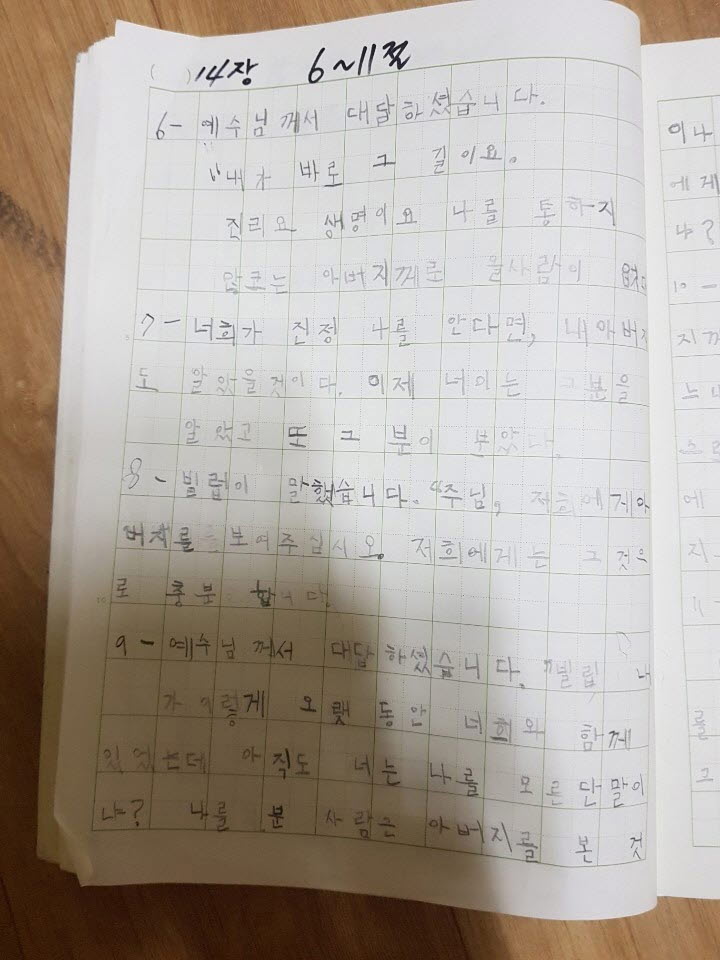 ( ) 14장 6~11절
6- 예수님께서 대답하셨습니다.
"내가 바로 그 길이요.
진리요 생명이요 나를 통하지
않고는 아버지께로 올사람이 없다
7- 너희가 진정 나를 안다면, 내아버지
도 알았을것이다. 이제 너희는 그분을
알았고 또 그 분이 보았다.
8- 빌립이 말했습니다. "주님, 저희에게아
버지를 보여주십시오. 저희에게는 그것으
로 충분 합니다.
9- 예수님께서 대답하셨습니다. "빌립 내
가 이렇게 오랫동안 너희와 함께
있었는데 아직도 너는 나를 모른단말이
냐? 나를 본 사람은 아버지를 본 것
이나
에게
냐?
10-
지
느
에
지
를
그